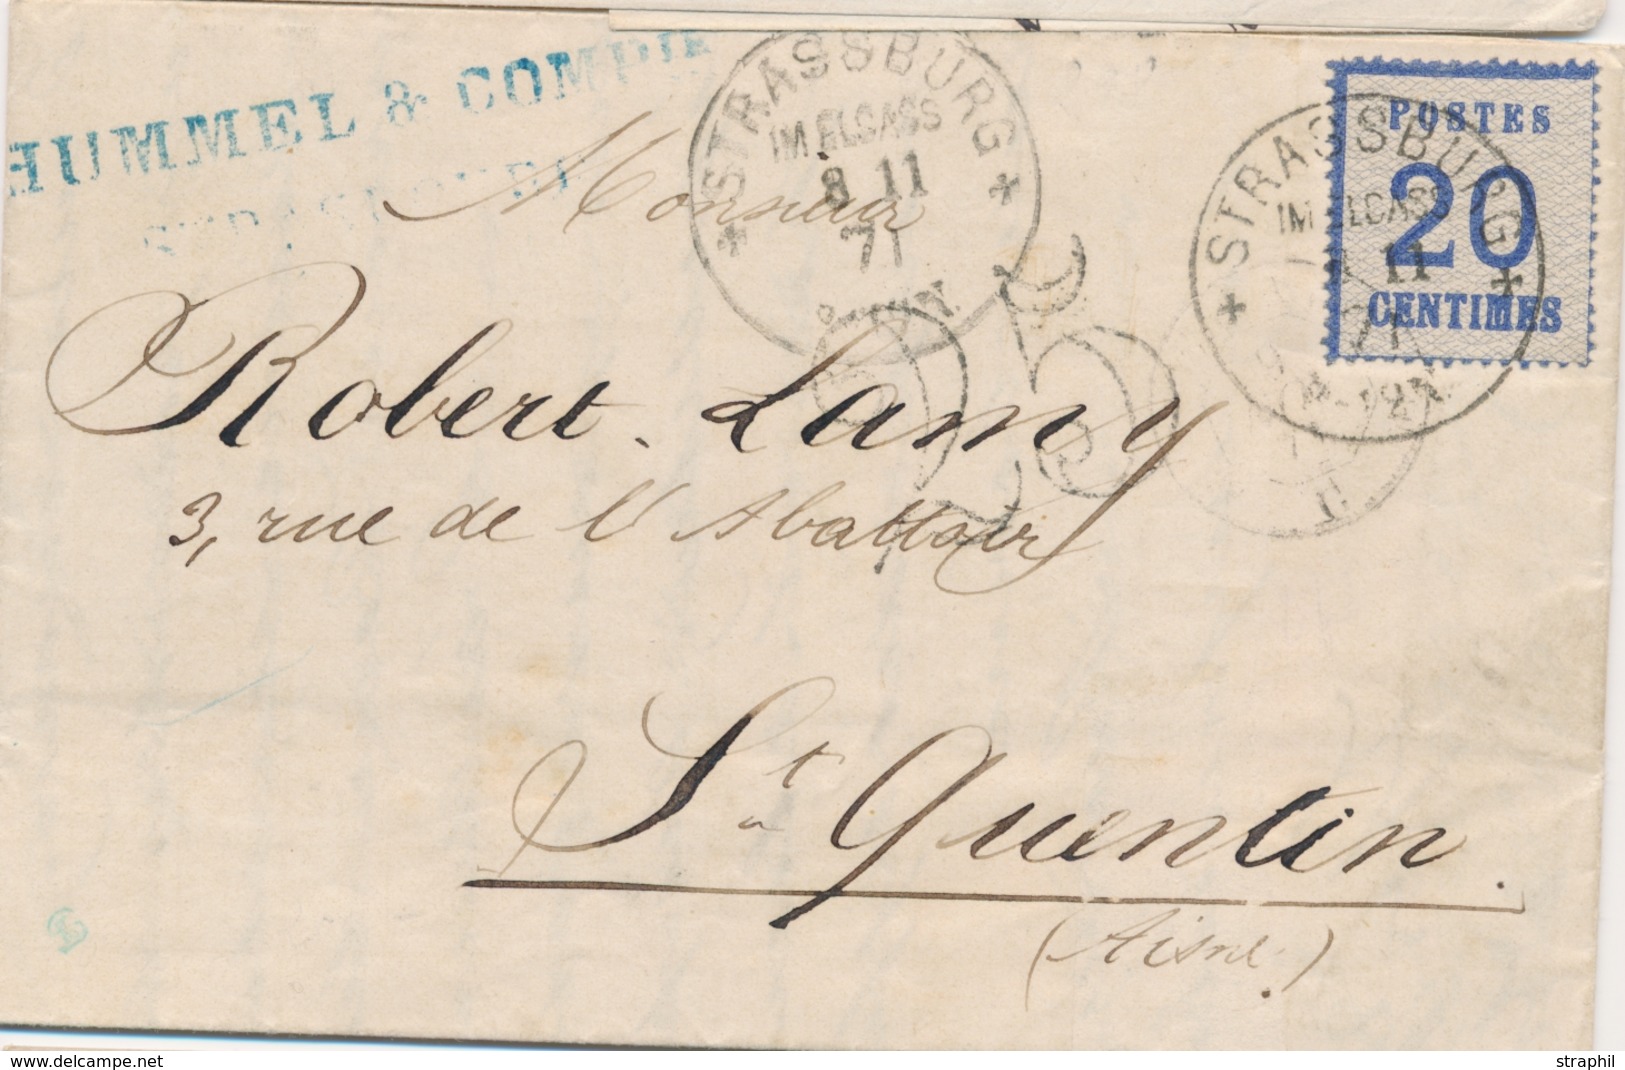 HUMMEL & COMPIE
STRASBOURG
STRASSBURG
IM ELSASS
8 11
71
POSTES
20
CENTIMES
STRASSBURG
IM ELSASS
11
71
25
Monsieur
Robert Lamy
3, rue de l'Abattoir
St Quentin.
(Aisne.)
© www.delcampe.net
straphil